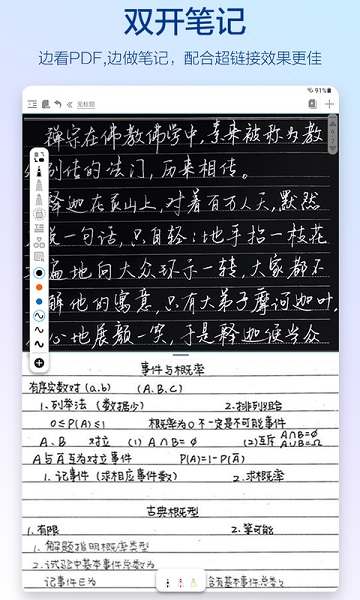 双开笔记
边看PDF,边做笔记，配合超链接效果更佳
91%
无标题
禅宗在佛教佛学中,素来被称为教
别传的法门,历来相传。
释迦在灵山上,对着百万人天,默然
说一句话,只自轻轻地手拈一枝花
遍地向大众环示一转,大家都不
解他的寓意,只有大弟子摩诃迦叶,
心地展颜一笑,于是释迦便当众
事件与概率
有序实数对(a,b) (A,B,C)
1.列举法(数据少) 2.排列组合
0≤P(A)≤1 概率为0不一定是不可能事件
A、B 对立 (1) A∩B=∅ (2)互斥 A∩B=∅
A∪B=Ω
A与Ā互为对立事件 P(A)=1-P(Ā)
1.记事件(求相应事件数) 2.求概率
古典概型
1.有限 2.等可能
1.解题指明概率类型
2.试验中基本事件总数为
记事件E为 含有基本事件总数为